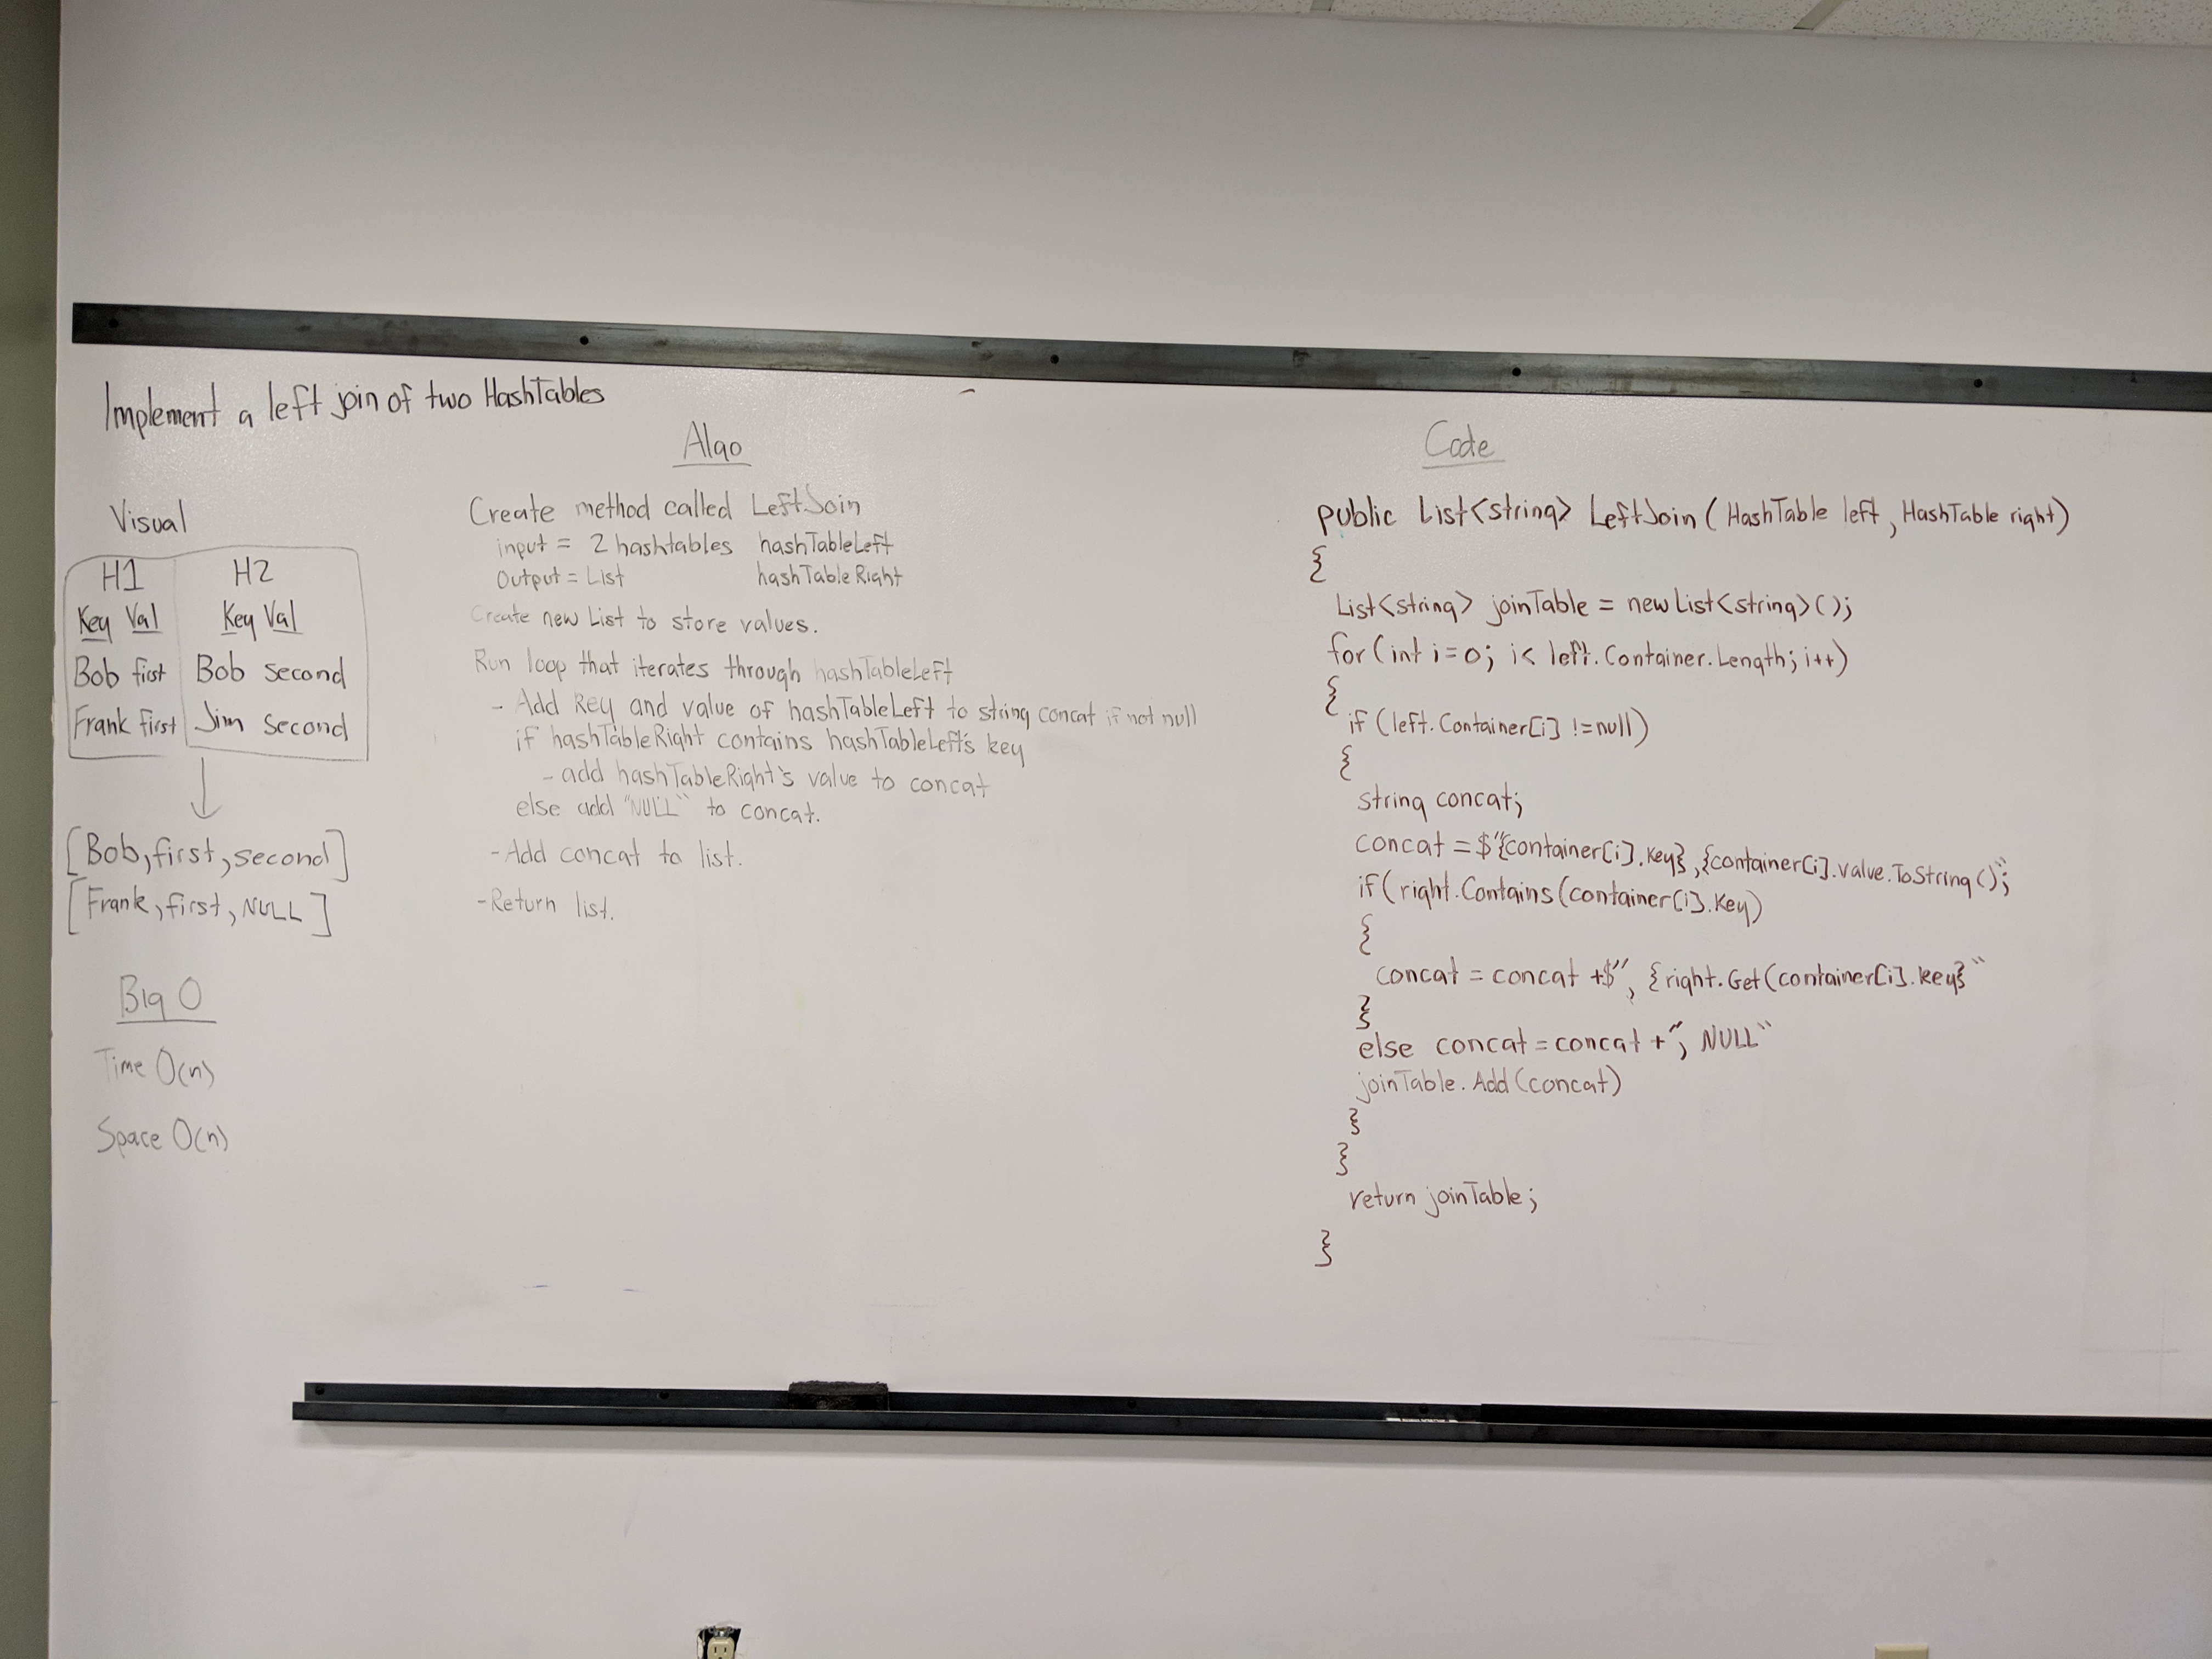 Implement a left join of two HashTables
Visual
H1 H2
Key Val Key Val
Bob first Bob second
Frank first Jim second
[Bob, first, second]
[Frank, first, NULL]
Big O
Time O(n)
Space O(n)
Algo
Create method called LeftJoin
input = 2 hashtables hashTableLeft
Output = List hashTableRight
Create new List to store values.
Run loop that iterates through hashTableLeft
- Add key and value of hashTableLeft to string concat if not null
if hashTableRight contains hashTableLeft's key
- add hashTableRight's value to concat
else add "NULL" to concat.
- Add concat to list.
- Return list.
Code
public List<string> LeftJoin (HashTable left, HashTable right)
{
List<string> joinTable = new List<string>();
for (int i=0; i< left.Container.Length; i++)
{
if (left.Container[i] != null)
{
string concat;
concat = $"{container[i].Key}, {container[i].value.ToString()";
if (right.Contains(container[i].Key)
{
concat = concat +$", {right.Get(container[i].key}"
}
else concat = concat + ", NULL"
joinTable.Add(concat)
}
}
return joinTable;
}